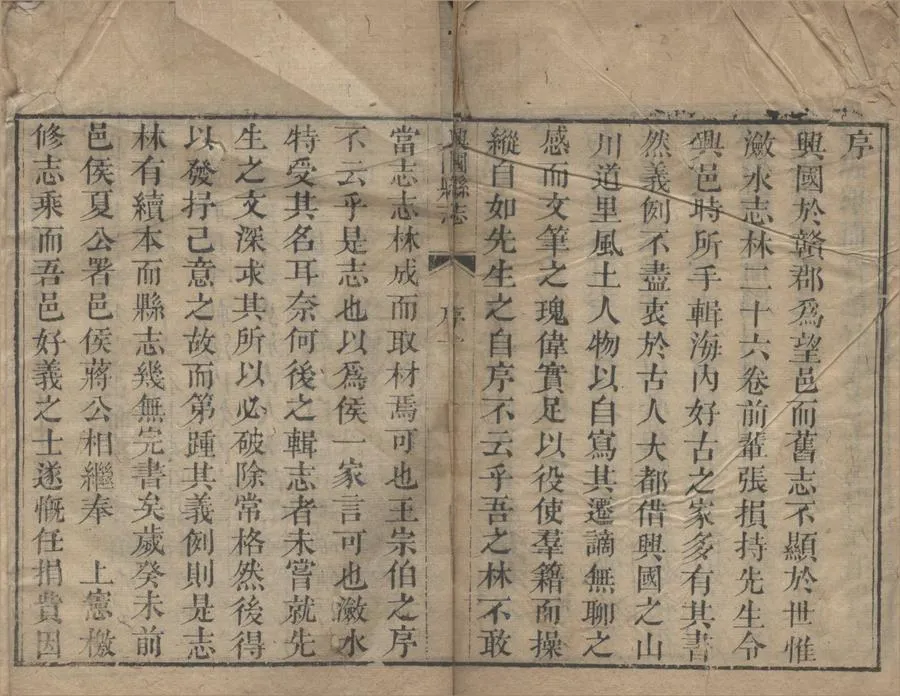 序
興國於贛郡爲望邑而舊志不顯於世惟
瀲水志林二十六卷前輩張損持先生令
興邑時所手輯海內好古之家多有其書
然義例不盡衷於古人大都借興國之山
川道里風土人物以自寫其遷謫無聊之
感而文筆之瑰偉實足以役使羣籍而操
縱自如先生之自序不云乎吾之林不敢
興國縣志 序 一
當志志林成而取材焉可也王崇伯之序
不云乎是志也以爲侯一家言可也瀲水
特受其名耳奈何後之輯志者未嘗就先
生之文深求其所以必破除常格然後得
以發抒己意之故而第踵其義例則是志
林有續本而縣志幾無完書矣歲癸未前
邑侯夏公署邑侯蔣公相繼奉 上憲檄
修志乘而吾邑好義之士遂慨任捐費因